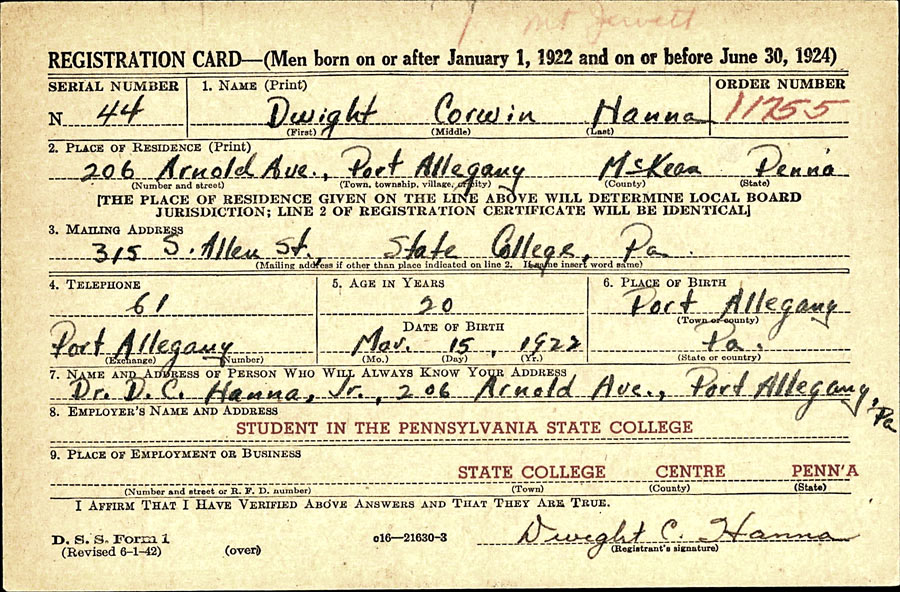 Mt Jewett
REGISTRATION CARD—(Men born on or after January 1, 1922 and on or before June 30, 1924)
SERIAL NUMBER 1. NAME (Print) ORDER NUMBER
N 44 Dwight Corwin Hanna 11755
(First) (Middle) (Last)
2. PLACE OF RESIDENCE (Print)
206 Arnold Ave., Port Allegany McKean Penna
(Number and street) (Town, township, village, or city) (County) (State)
[THE PLACE OF RESIDENCE GIVEN ON THE LINE ABOVE WILL DETERMINE LOCAL BOARD
JURISDICTION; LINE 2 OF REGISTRATION CERTIFICATE WILL BE IDENTICAL]
3. MAILING ADDRESS
315 S. Allen St., State College, Pa.
(Mailing address if other than place indicated on line 2. If same insert word same)
4. TELEPHONE 5. AGE IN YEARS 6. PLACE OF BIRTH
61 20 Port Allegany
(Town or county)
DATE OF BIRTH
Port Allegany Mar. 15, 1922 Pa.
(Exchange) (Number) (Mo.) (Day) (Yr.) (State or country)
7. NAME AND ADDRESS OF PERSON WHO WILL ALWAYS KNOW YOUR ADDRESS
Dr. D. C. Hanna, Jr., 206 Arnold Ave., Port Allegany, Pa
8. EMPLOYER'S NAME AND ADDRESS
STUDENT IN THE PENNSYLVANIA STATE COLLEGE
9. PLACE OF EMPLOYMENT OR BUSINESS
STATE COLLEGE CENTRE PENN'A
(Number and street or R. F. D. number) (Town) (County) (State)
I AFFIRM THAT I HAVE VERIFIED ABOVE ANSWERS AND THAT THEY ARE TRUE.
D. S. S. Form 1
(Revised 6-1-42) (over) c16—21630-3 Dwight C. Hanna
(Registrant's signature)